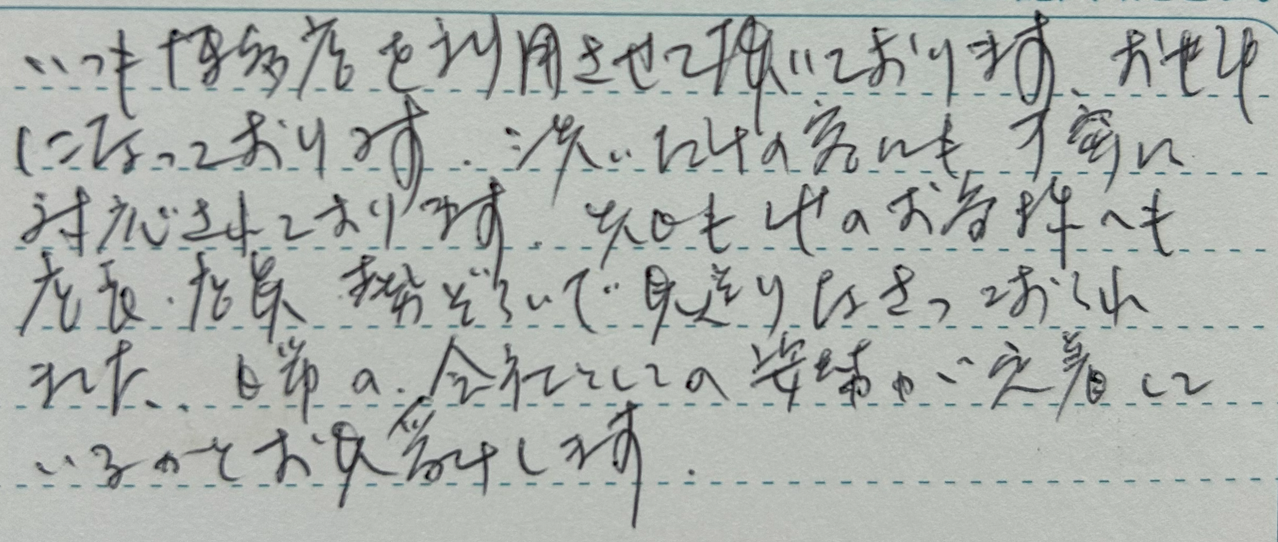 いつも博多店を利用させて頂いております、おせわ
になっております。洗いだけの客にも丁寧に
対応されております。先日も他のお客様へも
店長・店員 勢ぞろいで見送りなさっておられ
ました、日常の、会社としての姿勢が定着して
いるのとお見受けします。